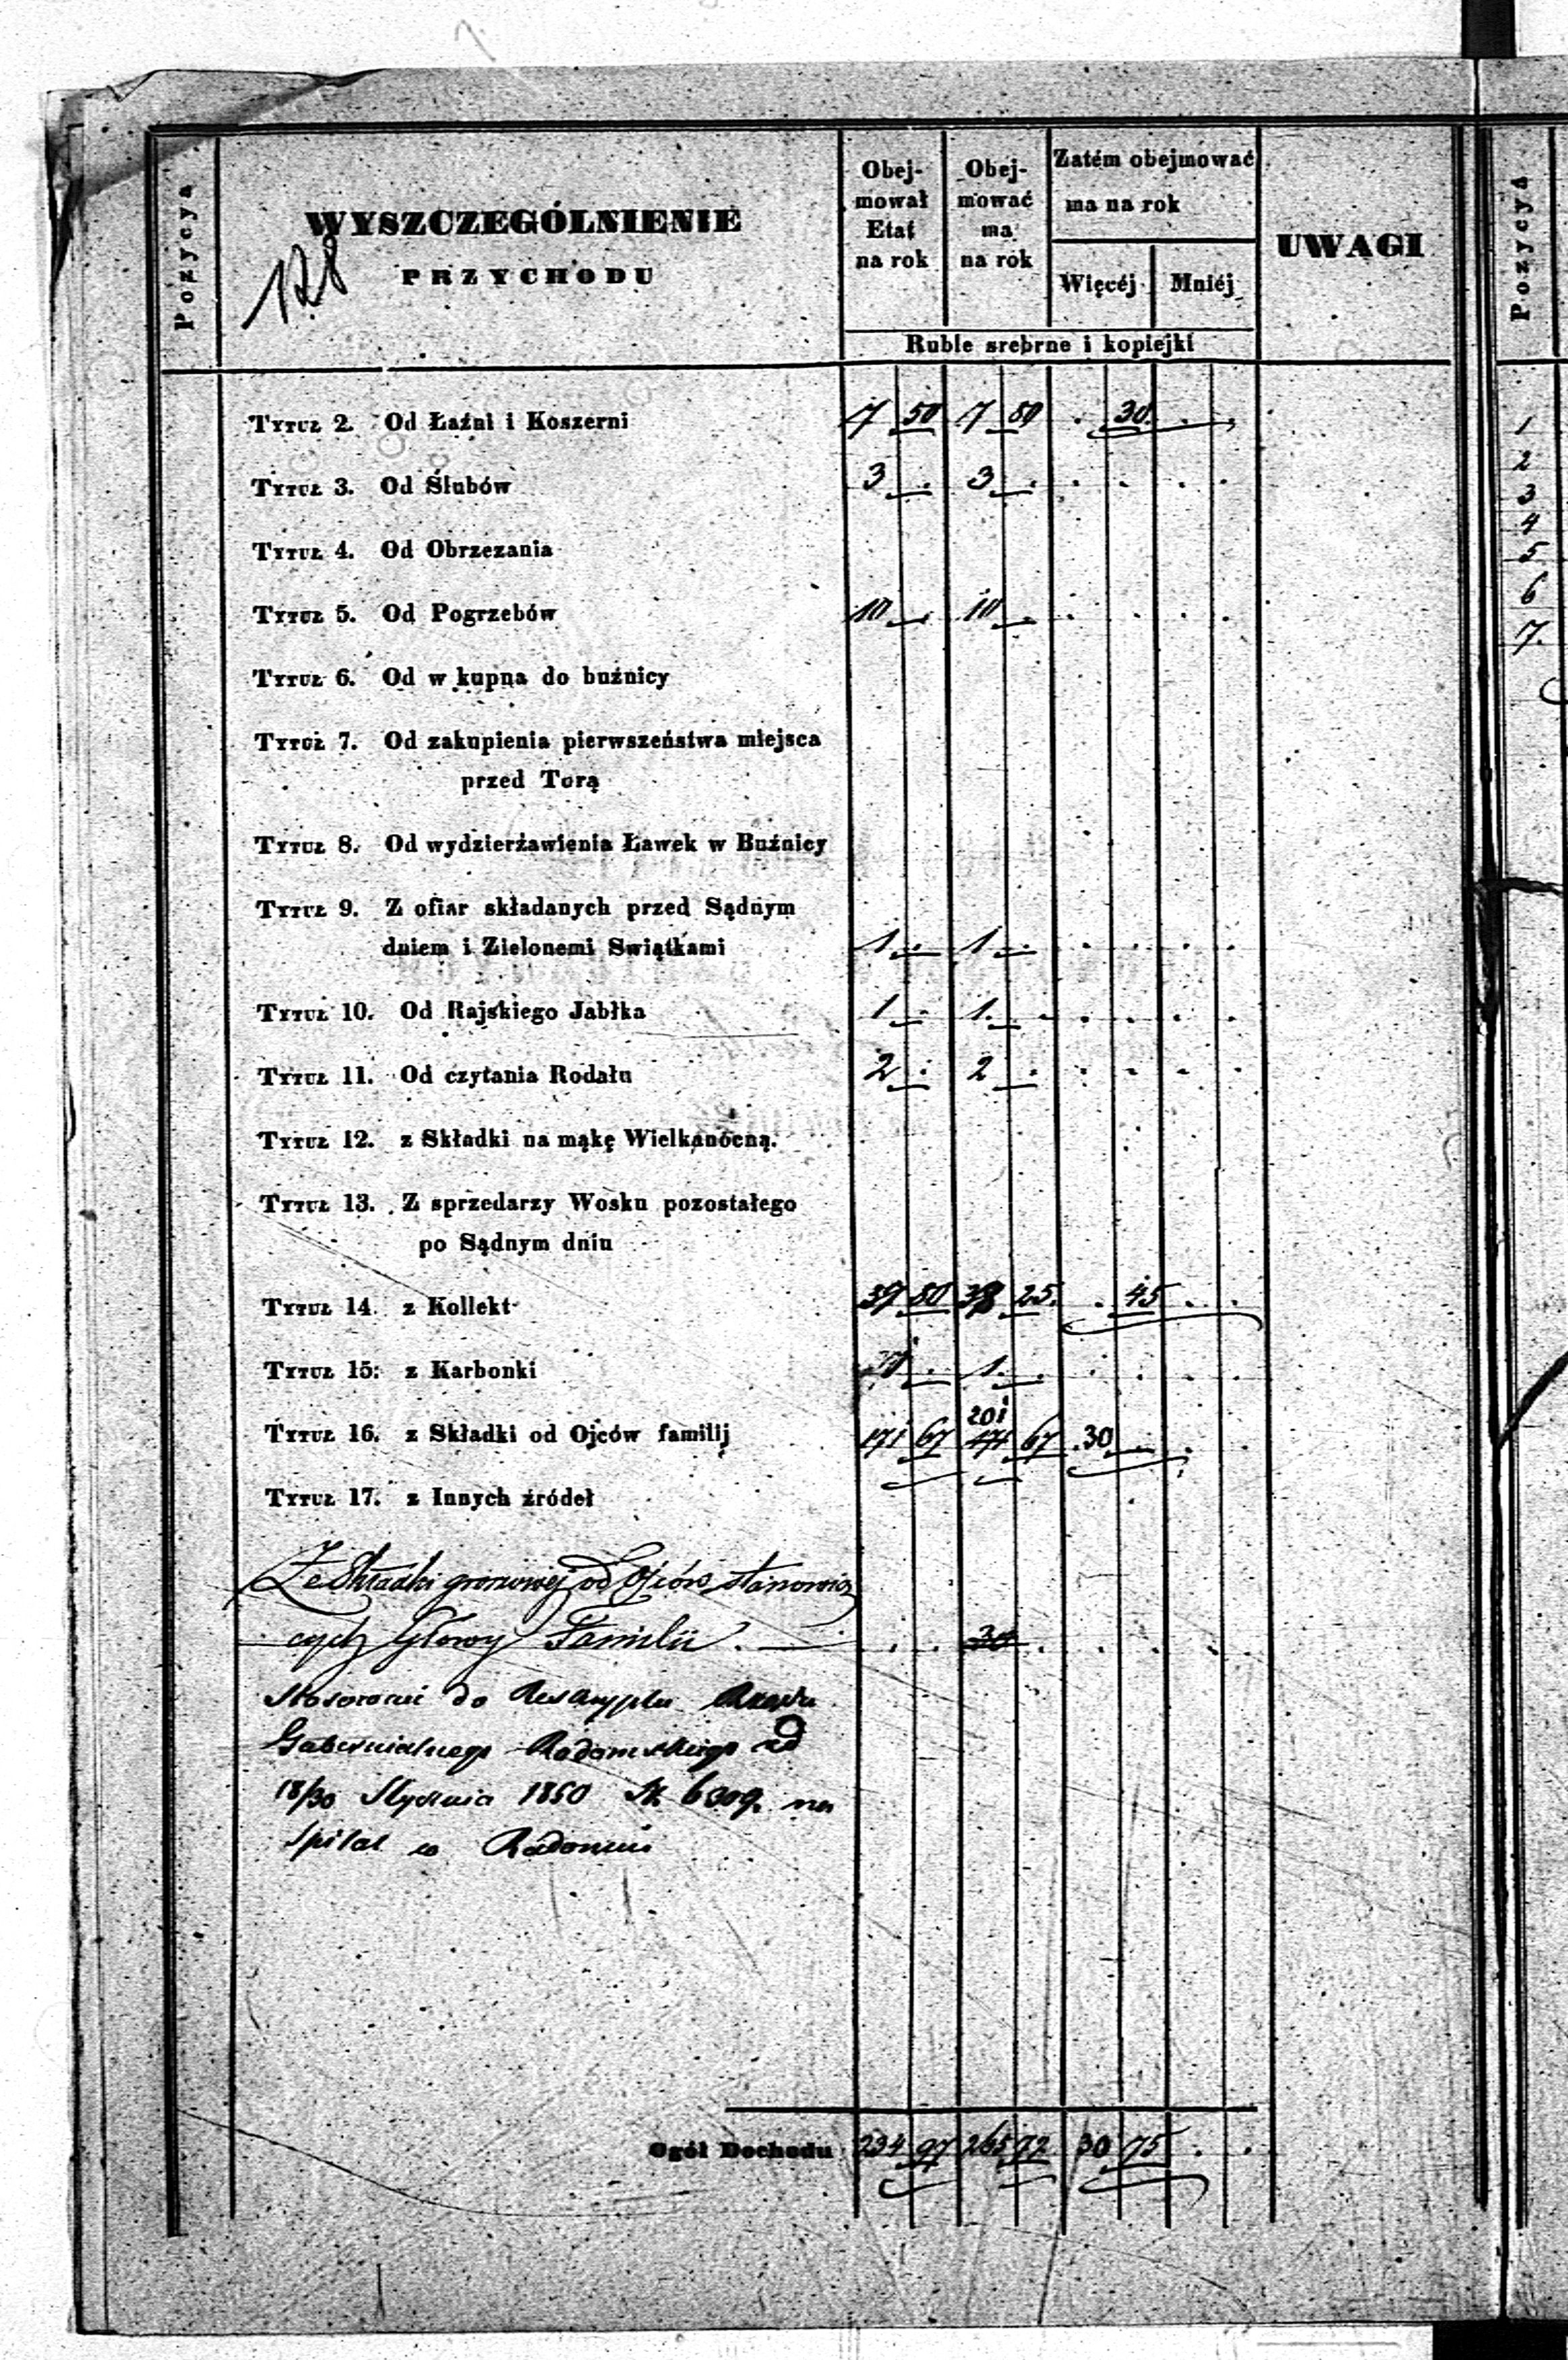 Pozycya
WYSZCZEGÓLNIENIE
PRZYCHODU
128
Obej-
mował
Etat
na rok
Obej-
mować
ma
na rok
Zatém obejmować
ma na rok
Więcéj
Mniéj
UWAGI
Ruble srebrne i kopiejki
Pozycya
Tytuł 2. Od Łaźni i Koszerni 7 50 7 80 . 30 . .
Tytuł 3. Od Ślubów 3 . 3 . . . . .
Tytuł 4. Od Obrzezania
Tytuł 5. Od Pogrzebów 10 . 10 . . . . .
Tytuł 6. Od w kupna do buźnicy
Tytuł 7. Od zakupienia pierwszeństwa miejsca
przed Torą
Tytuł 8. Od wydzierżawienia Ławek w Buźnicy
Tytuł 9. Z ofiar składanych przed Sądnym
dniem i Zielonemi Swiątkami 1 . 1 . . . . .
Tytuł 10. Od Rajskiego Jabłka 1 . 1 . . . . .
Tytuł 11. Od czytania Rodału 2 . 2 . . . . .
Tytuł 12. z Składki na mąkę Wielkanocną.
Tytuł 13. Z sprzedarzy Wosku pozostałego
po Sądnym dniu
Tytuł 14. z Kollekt 37 80 38 25 . 45 . .
Tytuł 15. z Karbonki . 1 . . . . .
201
Tytuł 16. z Składki od Ojców familij 171 67 171 67 30 . .
Tytuł 17. z Innych źródeł
Ze Składki gronowej od Ojców stanowią
cych Głowy Familii . . . 30 . . . . .
Stosownie do Reskryptu Rządu
Gubernialnego Radomskiego od
18/30 Stycznia 1850 6309 na
Spital w Radomiu
Ogół Dochodu 234 97 265 72 30 75 . .
1
2
3
4
5
6
7.